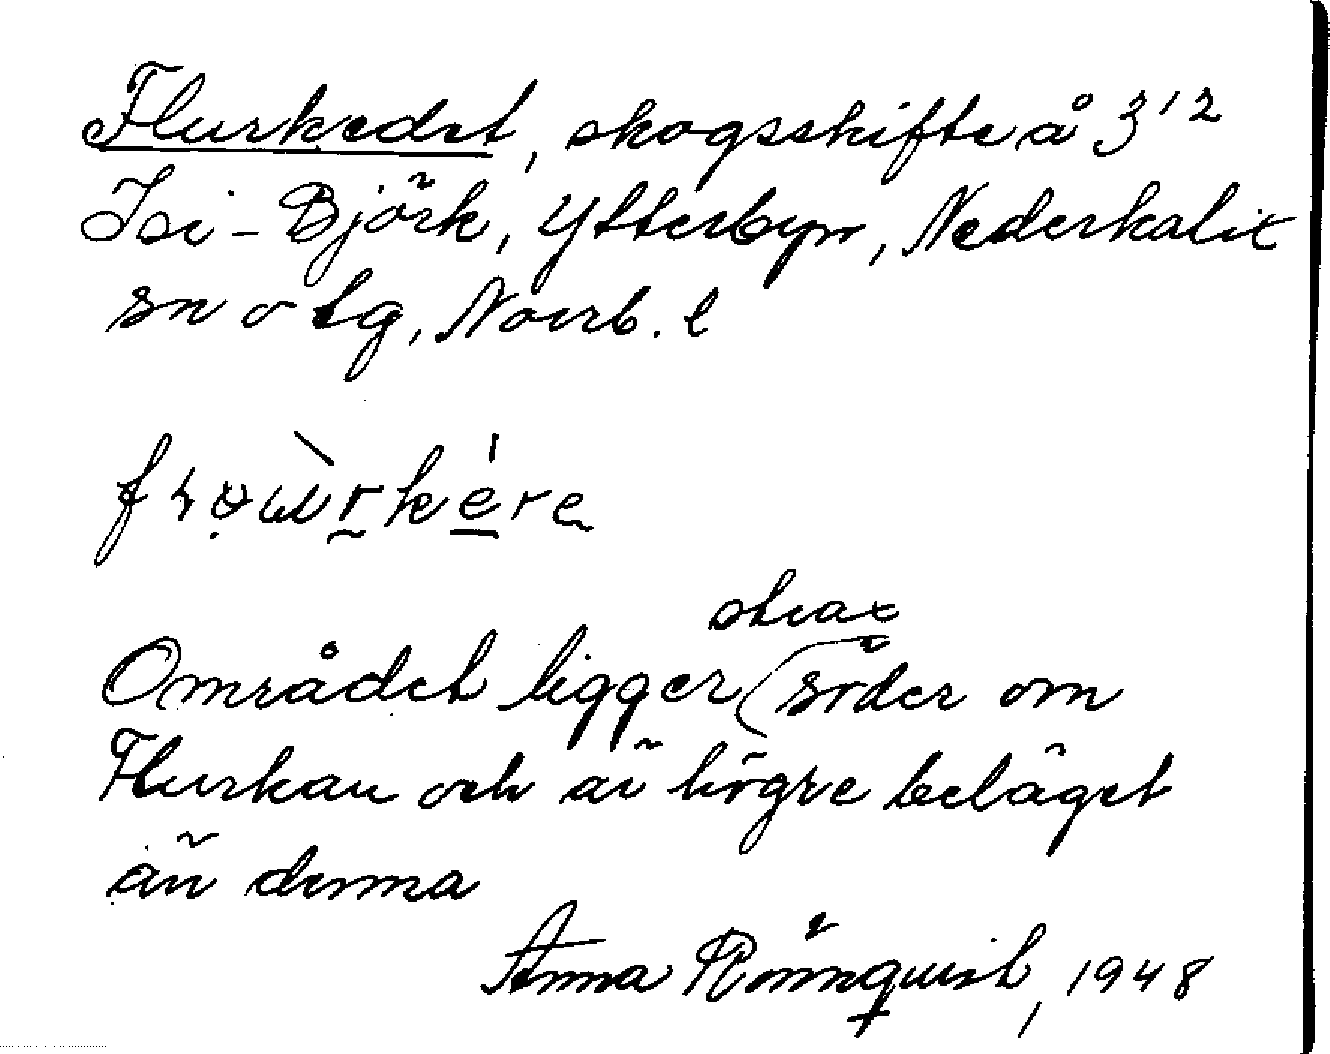 Flurkedet, skogsskifte å 3¹²
Isi-Björk, Ytterbyn, Nederkalix
sn o tg, Norrb. l
strax
Området ligger söder om
Flurkan och är högre beläget
än denna
Anna Rönnquist, 1948